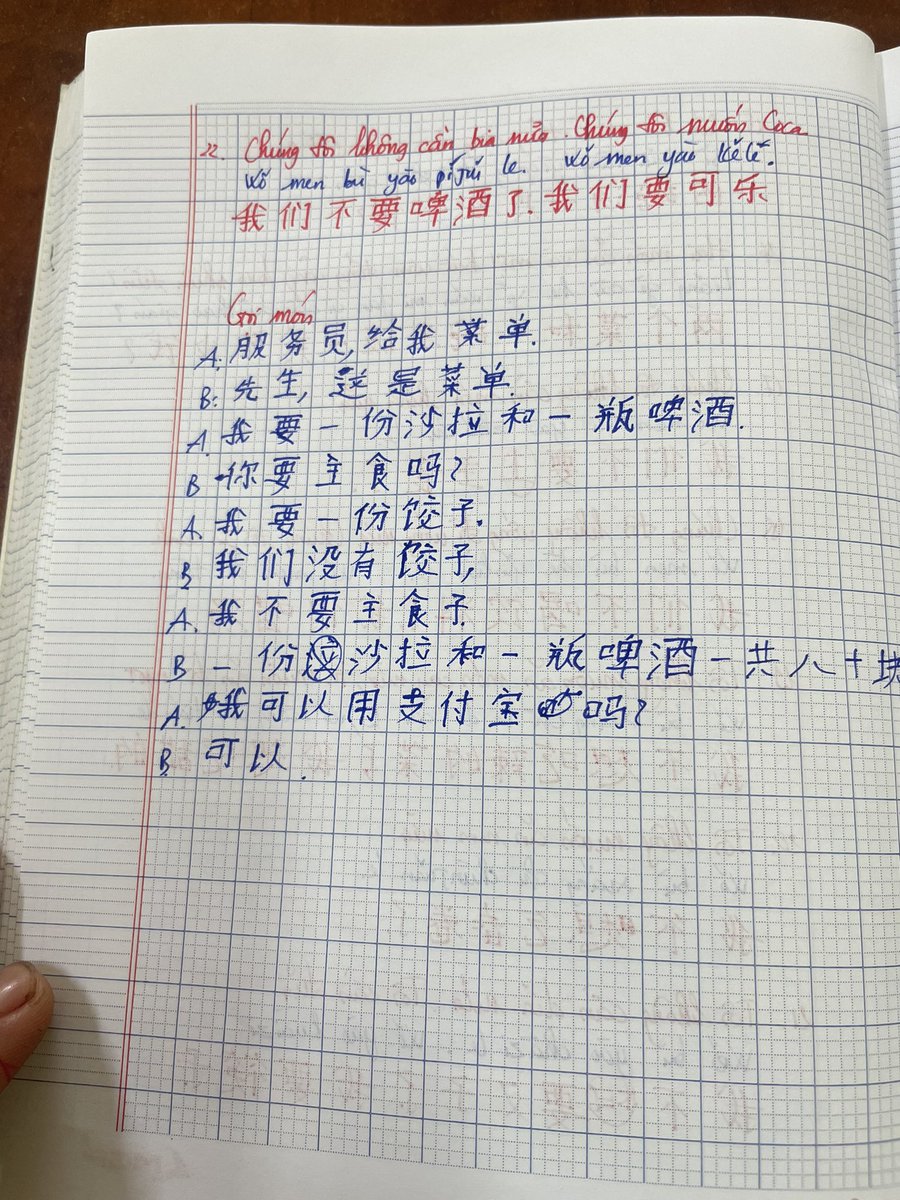 22. Chúng tôi không cần bia nữa. Chúng tôi muốn Coca
Wǒ men bù yào píjiǔ le. Wǒ men yào kělè.
我们不要啤酒了. 我们要可乐
Gọi món
A. 服务员, 给我菜单.
B: 先生, 这是菜单.
A. 我要一份沙拉和一瓶啤酒.
B 你要主食吗?
A. 我要一份饺子.
B 我们没有饺子,
A. 我不要主食子.
B 一份沙拉和一瓶啤酒一共八十块
A. 我可以用支付宝吗?
B 可以.